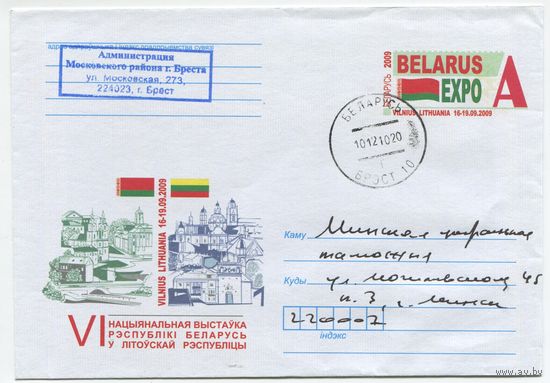 адрас адпраўшчыка і індэкс прадпрыемства сувязі
Администрация
Московского района г. Бреста
ул. Московская, 273,
224023, г. Брест
BELARUS
EXPO
A
БЕЛАРУСЬ 2009
VILNIUS LITHUANIA 16-19.09.2009
БЕЛАРУСЬ
10121020
БРЭСТ 10
VILNIUS LITHUANIA 16-19.09.2009
VI НАЦЫЯНАЛЬНАЯ ВЫСТАЎКА
РЭСПУБЛІКІ БЕЛАРУСЬ
У ЛІТОЎСКАЙ РЭСПУБЛІЦЫ
Каму Минская
таможня
Куды ул. 45
г. Минск
220007
індэкс
www.ay.by